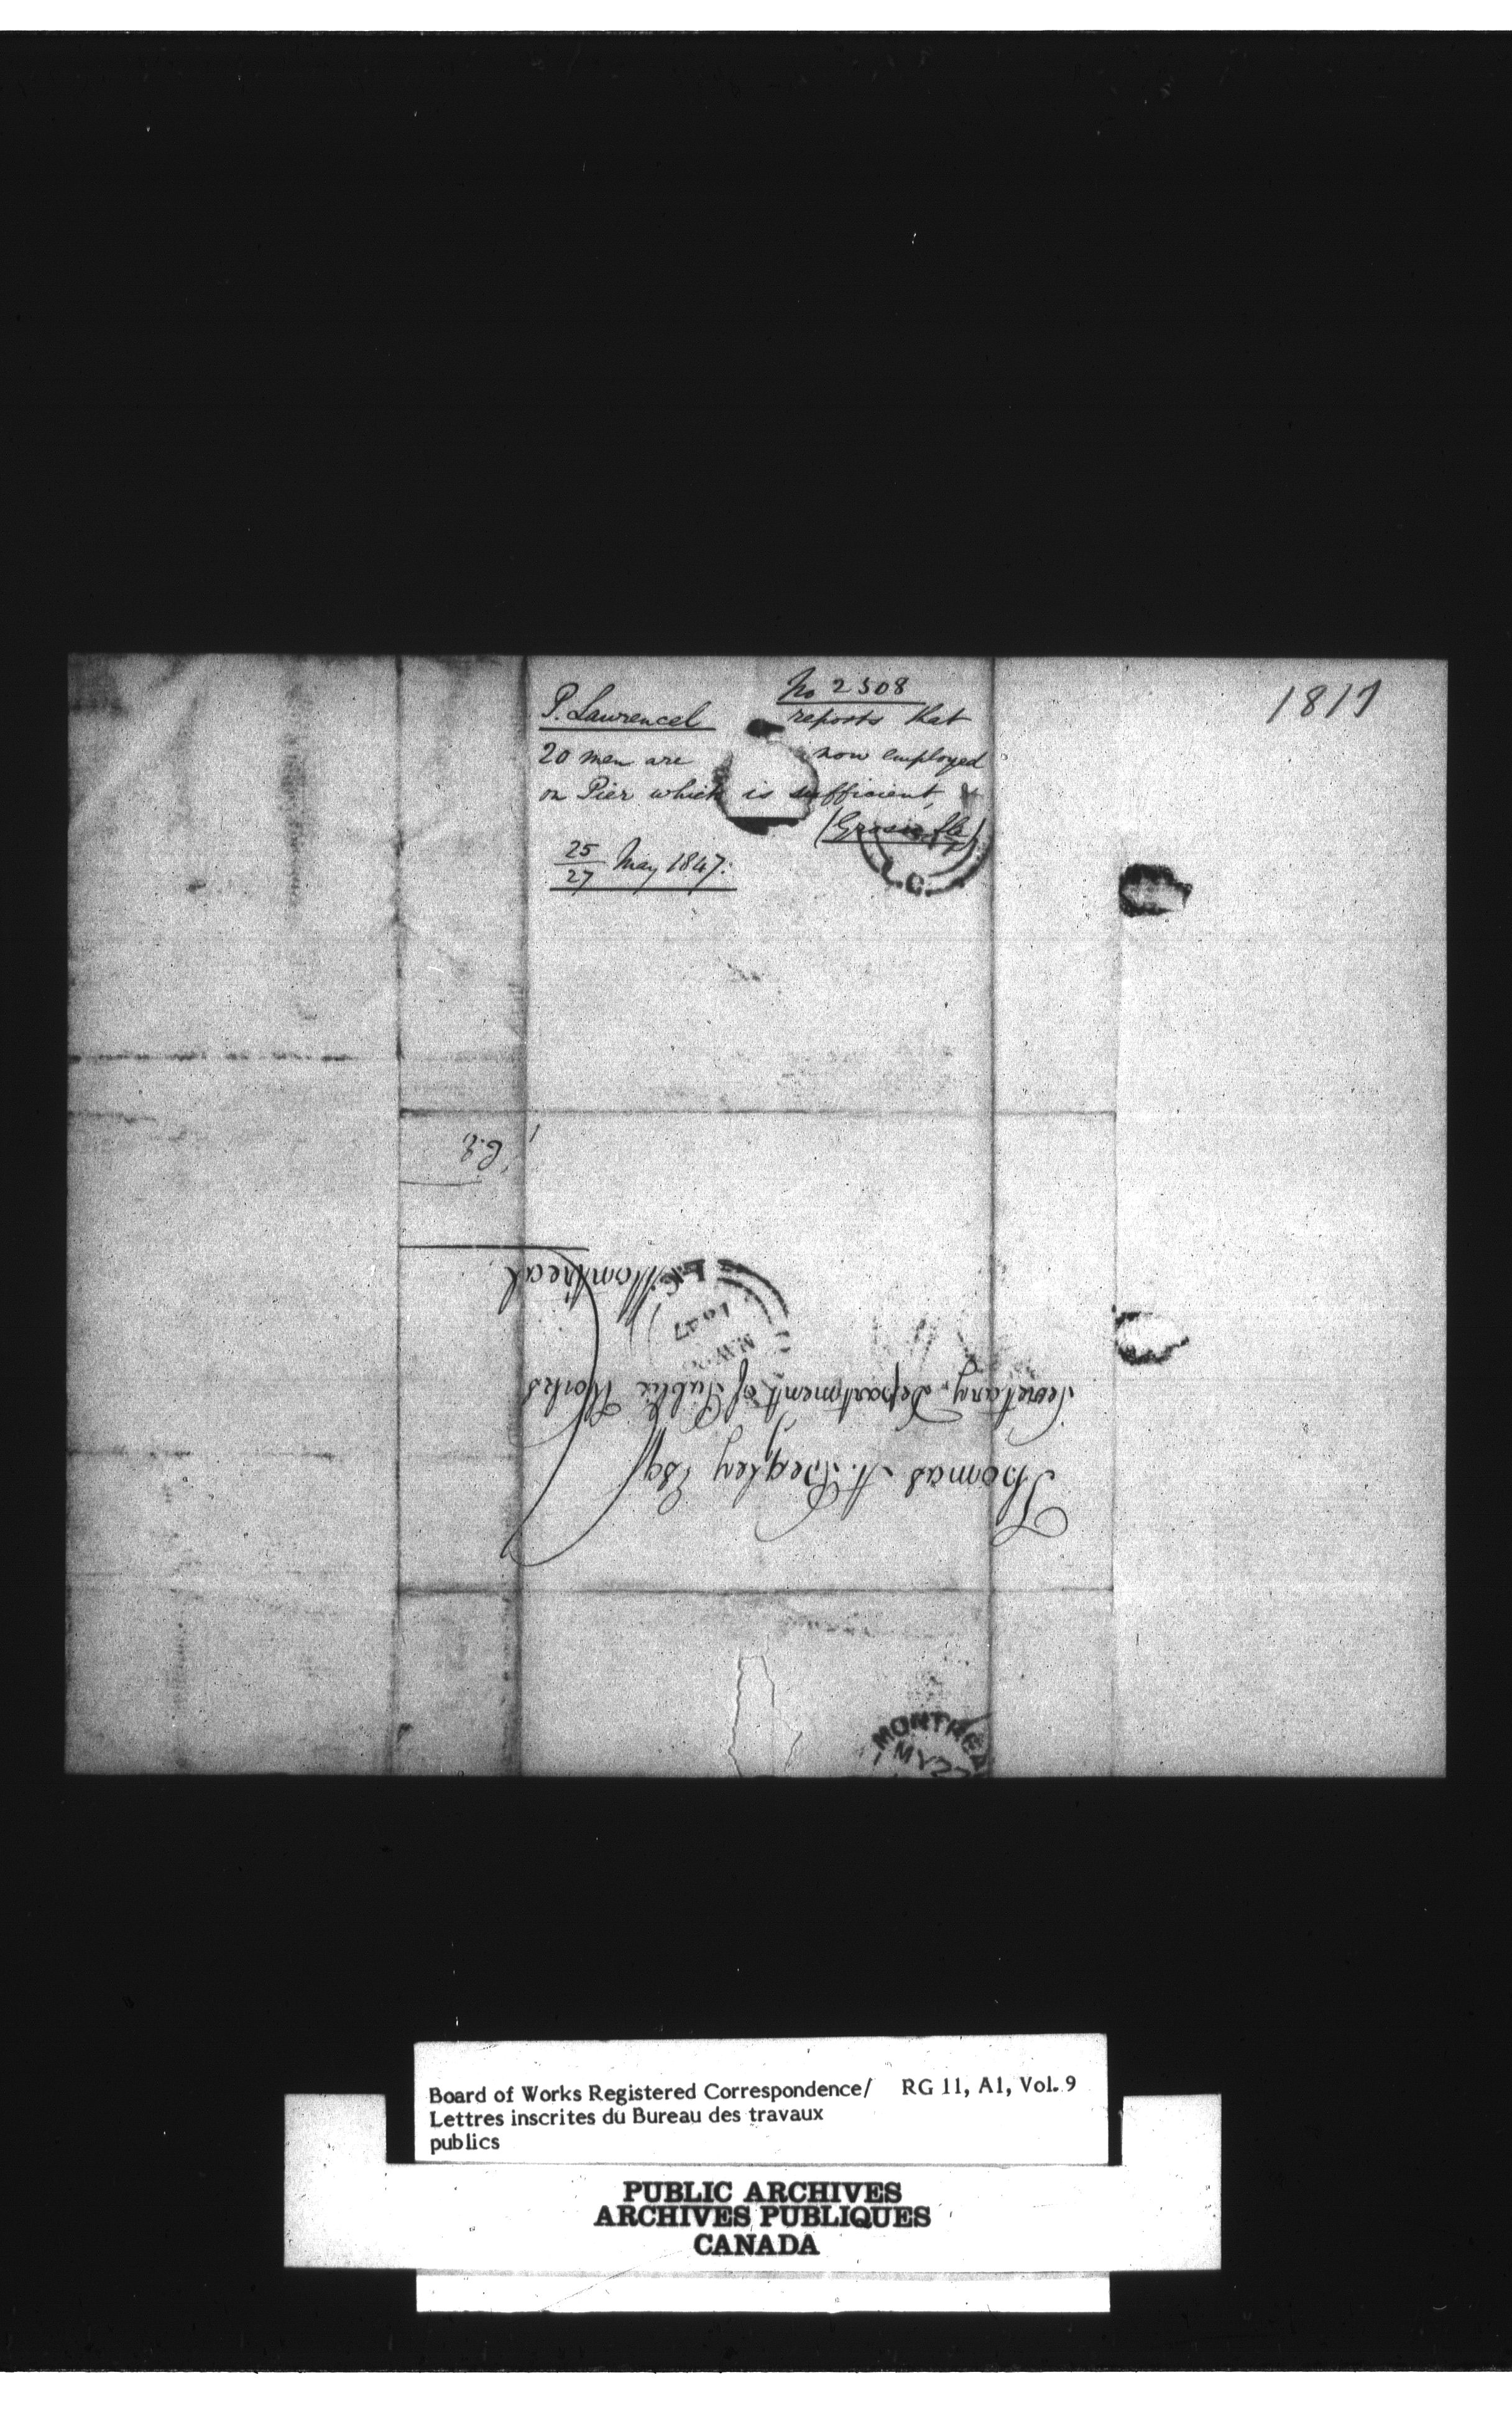 1817
No 2508
P. Lawrencel reports that
20 men are now employed
on Pier which is sufficient, &
(Grosse Ile)
25/27 May 1847.
L.C.
Thomas A. Begley Esqr
Secretary, Department of Public Works
Montreal
1847
L.C.
MONTREAL
MY 27
Board of Works Registered Correspondence/ RG 11, A1, Vol. 9
Lettres inscrites du Bureau des travaux
publics
PUBLIC ARCHIVES
ARCHIVES PUBLIQUES
CANADA